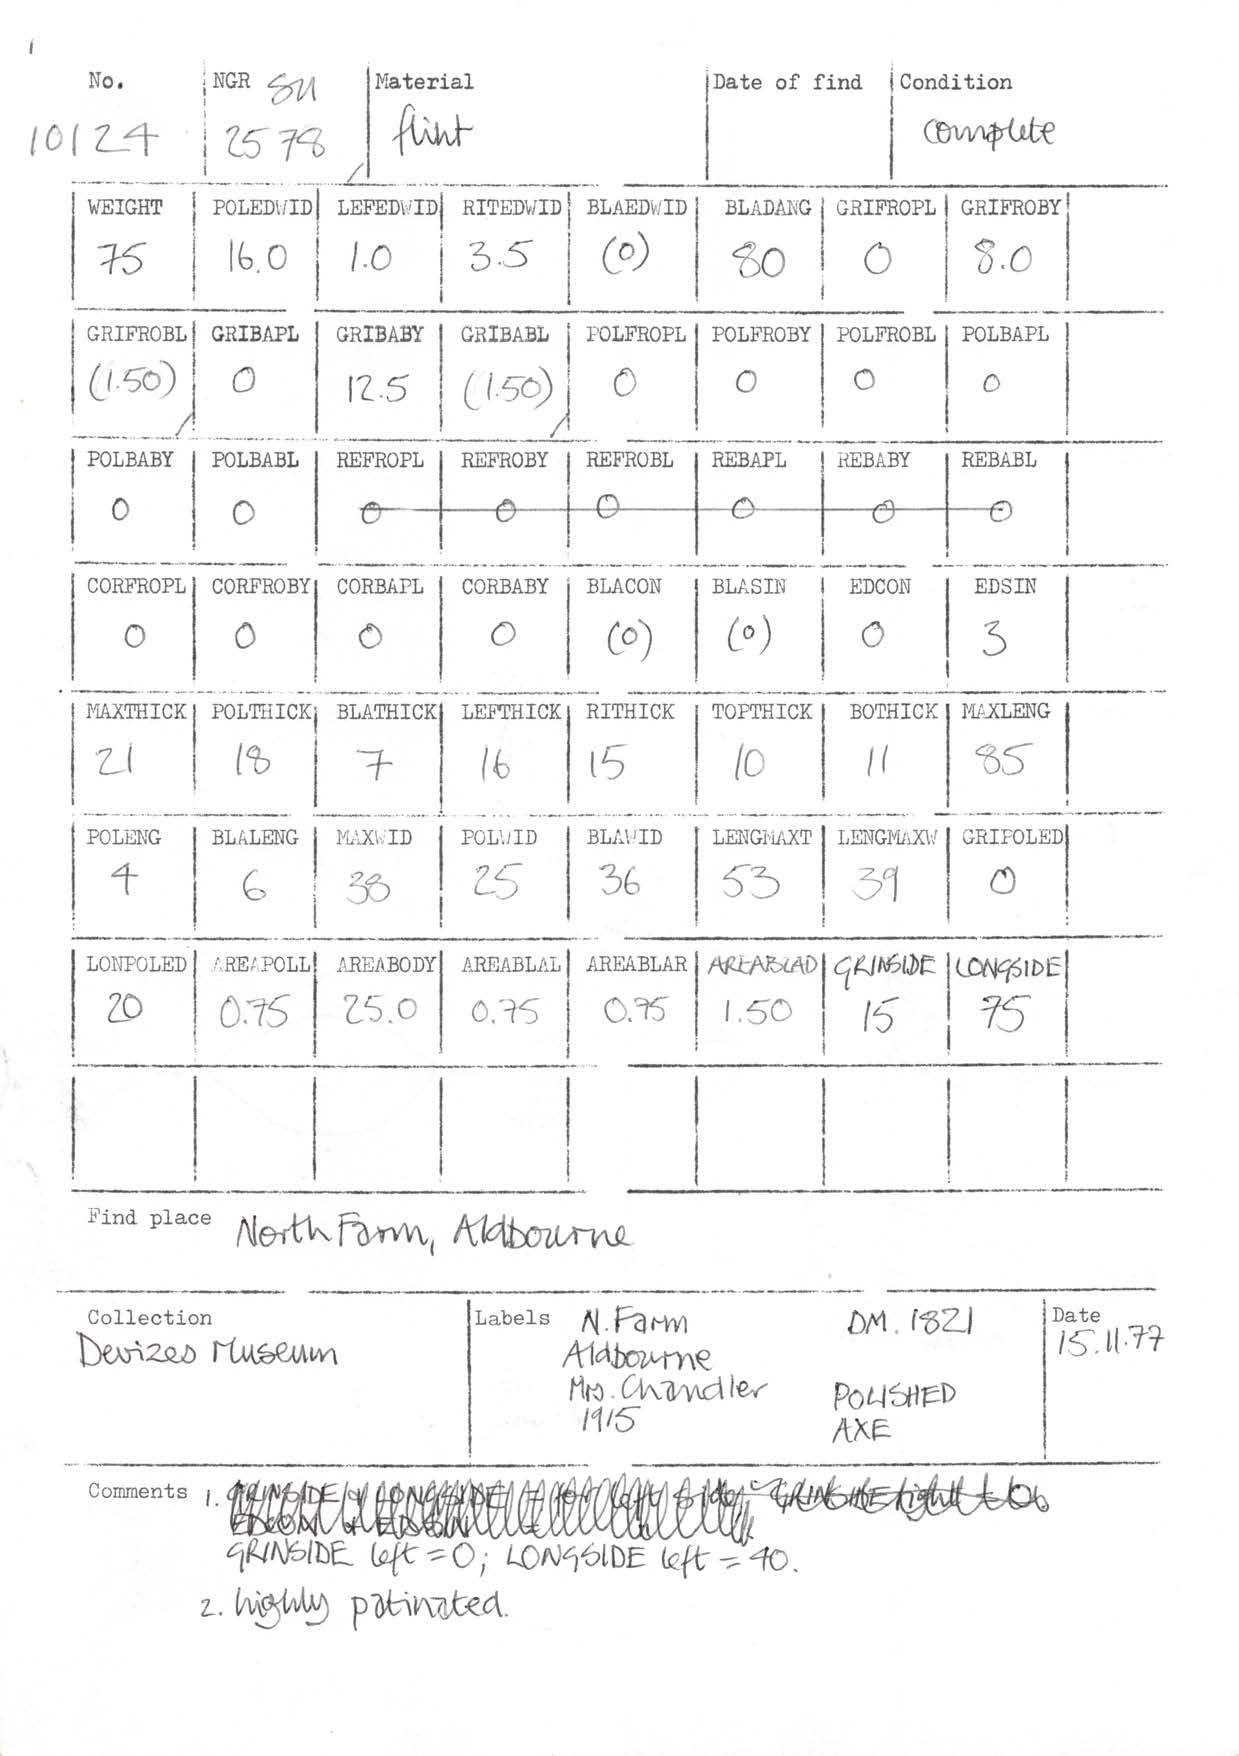 No. NGR SU Material Date of find Condition
10124 2578 flint complete
WEIGHT POLEDWID LEFEDWID RITEDWID BLAEDWID BLADANG GRIFROPL GRIFROBY
75 16.0 1.0 3.5 (0) 80 0 8.0
GRIFROBL GRIBAPL GRIBABY GRIBABL POLFROPL POLFROBY POLFROBL POLBAPL
(1.50) 0 12.5 (1.50) 0 0 0 0
POLBABY POLBABL REFROPL REFROBY REFROBL REBAPL REBABY REBABL
0 0 0 0 0 0 0 0
CORFROPL CORFROBY CORBAPL CORBABY BLACON BLASIN EDCON EDSIN
0 0 0 0 (0) (0) 0 3
MAXTHICK POLTHICK BLATHICK LEFTHICK RITHICK TOPTHICK BOTHICK MAXLENG
21 18 7 16 15 10 11 85
POLENG BLALENG MAXWID POLWID BLAWID LENGMAXT LENGMAXW GRIPOLED
4 6 38 25 36 53 39 0
LONPOLED AREAPOLL AREABODY AREABLAL AREABLAR AREABLAD GRINSIDE LONGSIDE
20 0.75 25.0 0.75 0.75 1.50 15 75
Find place North Farm, Aldbourne
Collection Labels N. Farm DM. 1821 Date
Devizes Museum Aldbourne 15.11.77
Mrs. Chandler POLISHED
1915 AXE
Comments 1.
GRINSIDE left = 0; LONGSIDE left = 40.
2. highly patinated.